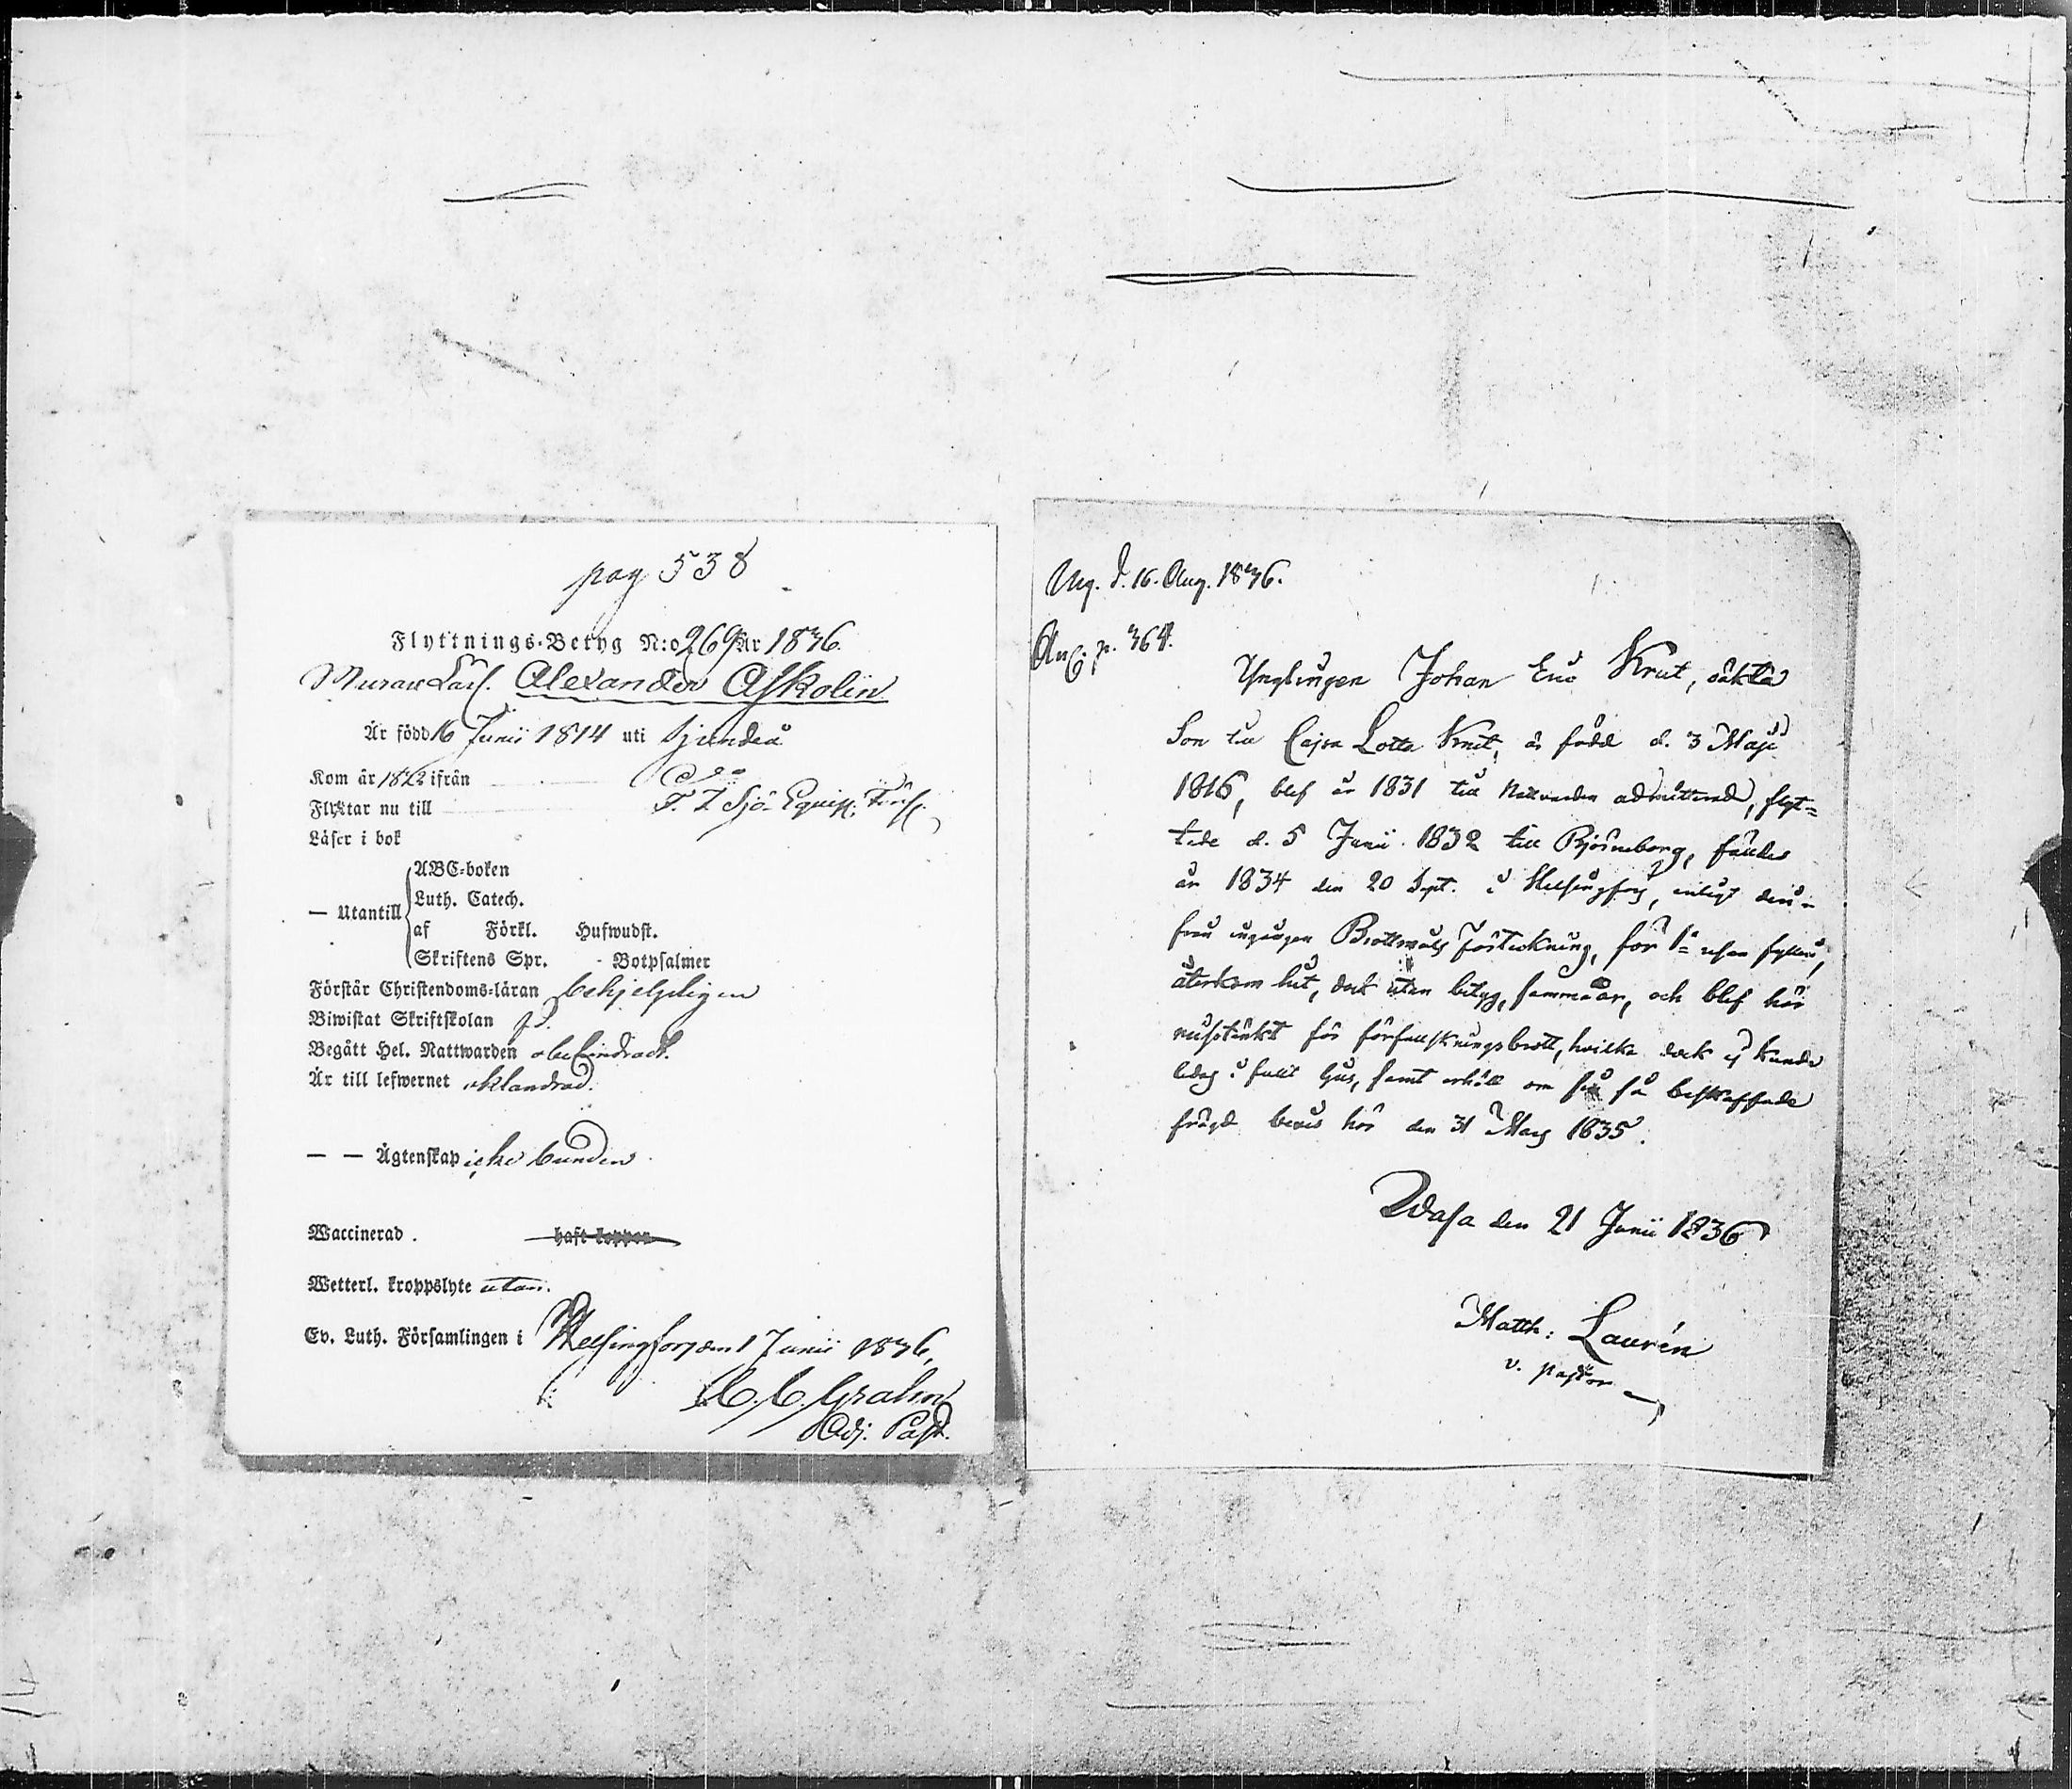 pag 538
Flyttnings-Betyg N:o 269 År 1836.
Murare Lärl. Alexander Askolin
Är född 16 Junii 1814 uti Sjundeå
Kom år 1822 ifrån d:o
Flyttar nu till F. 1 Sjö Equip.
Läser i bok
ABC-boken
Luth. Catech.
— Utantill
af Förkl. Hufwudst.
Skriftens Spr. - Botpsalmer
Förstår Christendoms-läran behjelpligen
Biwistat Skriftskolan
Begått Hel. Nattwarden obehindradt.
Är till lefwernet oklandrad.
— — Ägtenskap icke bunden
Waccinerad. haft koppor
Wetterl. kroppslyte utan.
Ev. Luth. Församlingen i Helsingfors den 1 Junii 1836,
C. C. Grahn
Adj: Past.
d. 16. Aug. 1836.
p. 364.
Ynglingen Johan Eric Krut, oäkta
Son till Cajsa Lotta Krut, är född d. 3 Maji
1816, blef år 1831 till Nattvarden admitterad, flyt=
tade d. 5 Junii 1832 till Björneborg, fäldes
år 1834 den 20 Sept. i Helsingfors, enligt der=
från ingången Brottmåls Förteckning, för 1:a resan fylleri,
återkom hit, dock utan betyg, samma år, och blef här
misstänkt för förfalskningsbrott, hvilka dock ej kunde
ledas i fullt ljus, samt erhöll om så beskaffade
frägd bevis här den 31 Mars 1835.
Wasa den 21 Junii 1836
Matth: Laurén
v. pastor